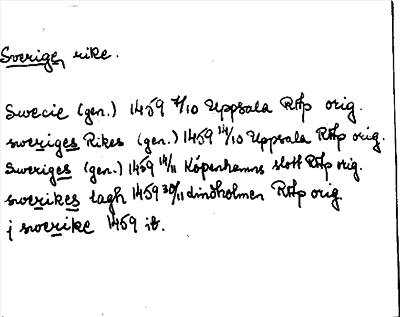 Sverige, rike.
Swecie (gen.) 1459 4/10 Uppsala RAp orig.
sweriges Rikes (gen.) 1459 14/10 Uppsala RAp orig.
Sweriges (gen.) 1459 14/11 Köpenhamns slott RAp orig.
swerikes lagh 1459 30/11 Lindholmen RAp orig
j swerike 1459 ib.